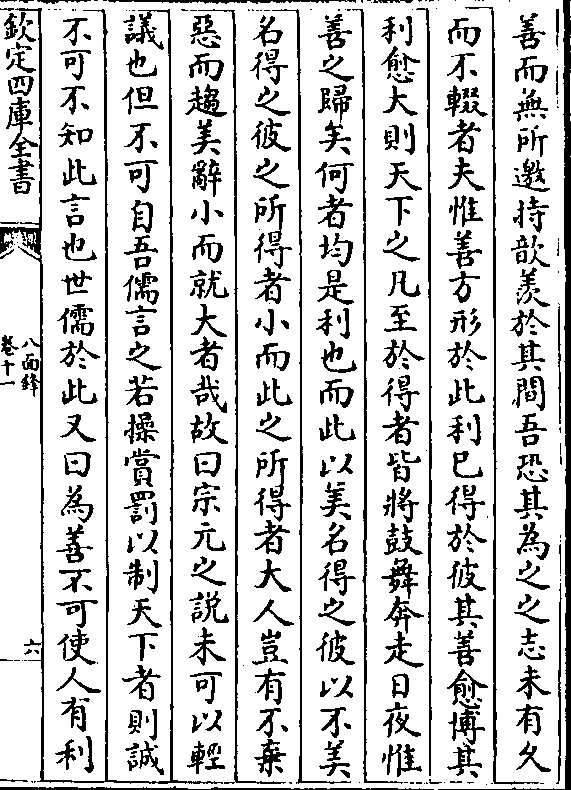 善而無所邀持歆羨於其間吾恐其為之之志未有久
而不輟者夫惟善方形於此利已得於彼其善愈博其
利愈大則天下之凡至於得者皆將鼓舞奔走日夜惟
善之歸矣何者均是利也而此以美名得之彼以不美
名得之彼之所得者小而此之所得者大人豈有不棄
惡而趨美辭小而就大者哉故曰宗元之説未可以輕
議也但不可自吾儒言之若操賞罰以制天下者則誠
不可不知此言也世儒於此又曰為善不可使人有利
欽定四庫全書
八面鋒
卷十一
六